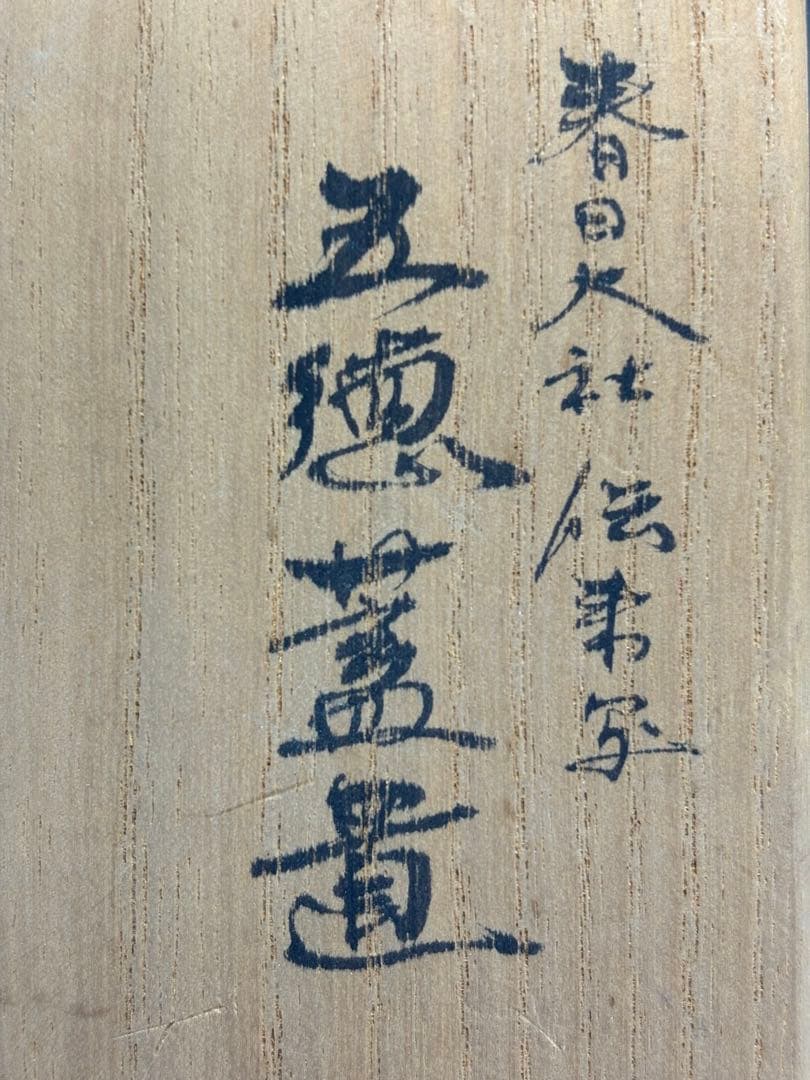 春日大社伝来写
五徳蓋置